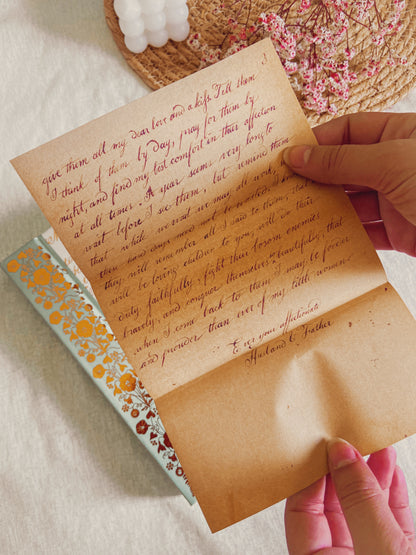 3
give them all my dear love and a kiss. Tell them
I think of them by day, pray for them by
night, and find my best comfort in their affection
at all times. A year seems very long to
wait before I see them, but remind them
that while we wait we may all work, so that
these hard days need not be wasted. I know
they will remember all I said to them, that they
will be loving children to you, will do their
duty faithfully, fight their bosom enemies
bravely, and conquer themselves so beautifully, that
when I come back to them I may be fonder
and prouder than ever of my little women.
Ever your affectionate
Husband & Father